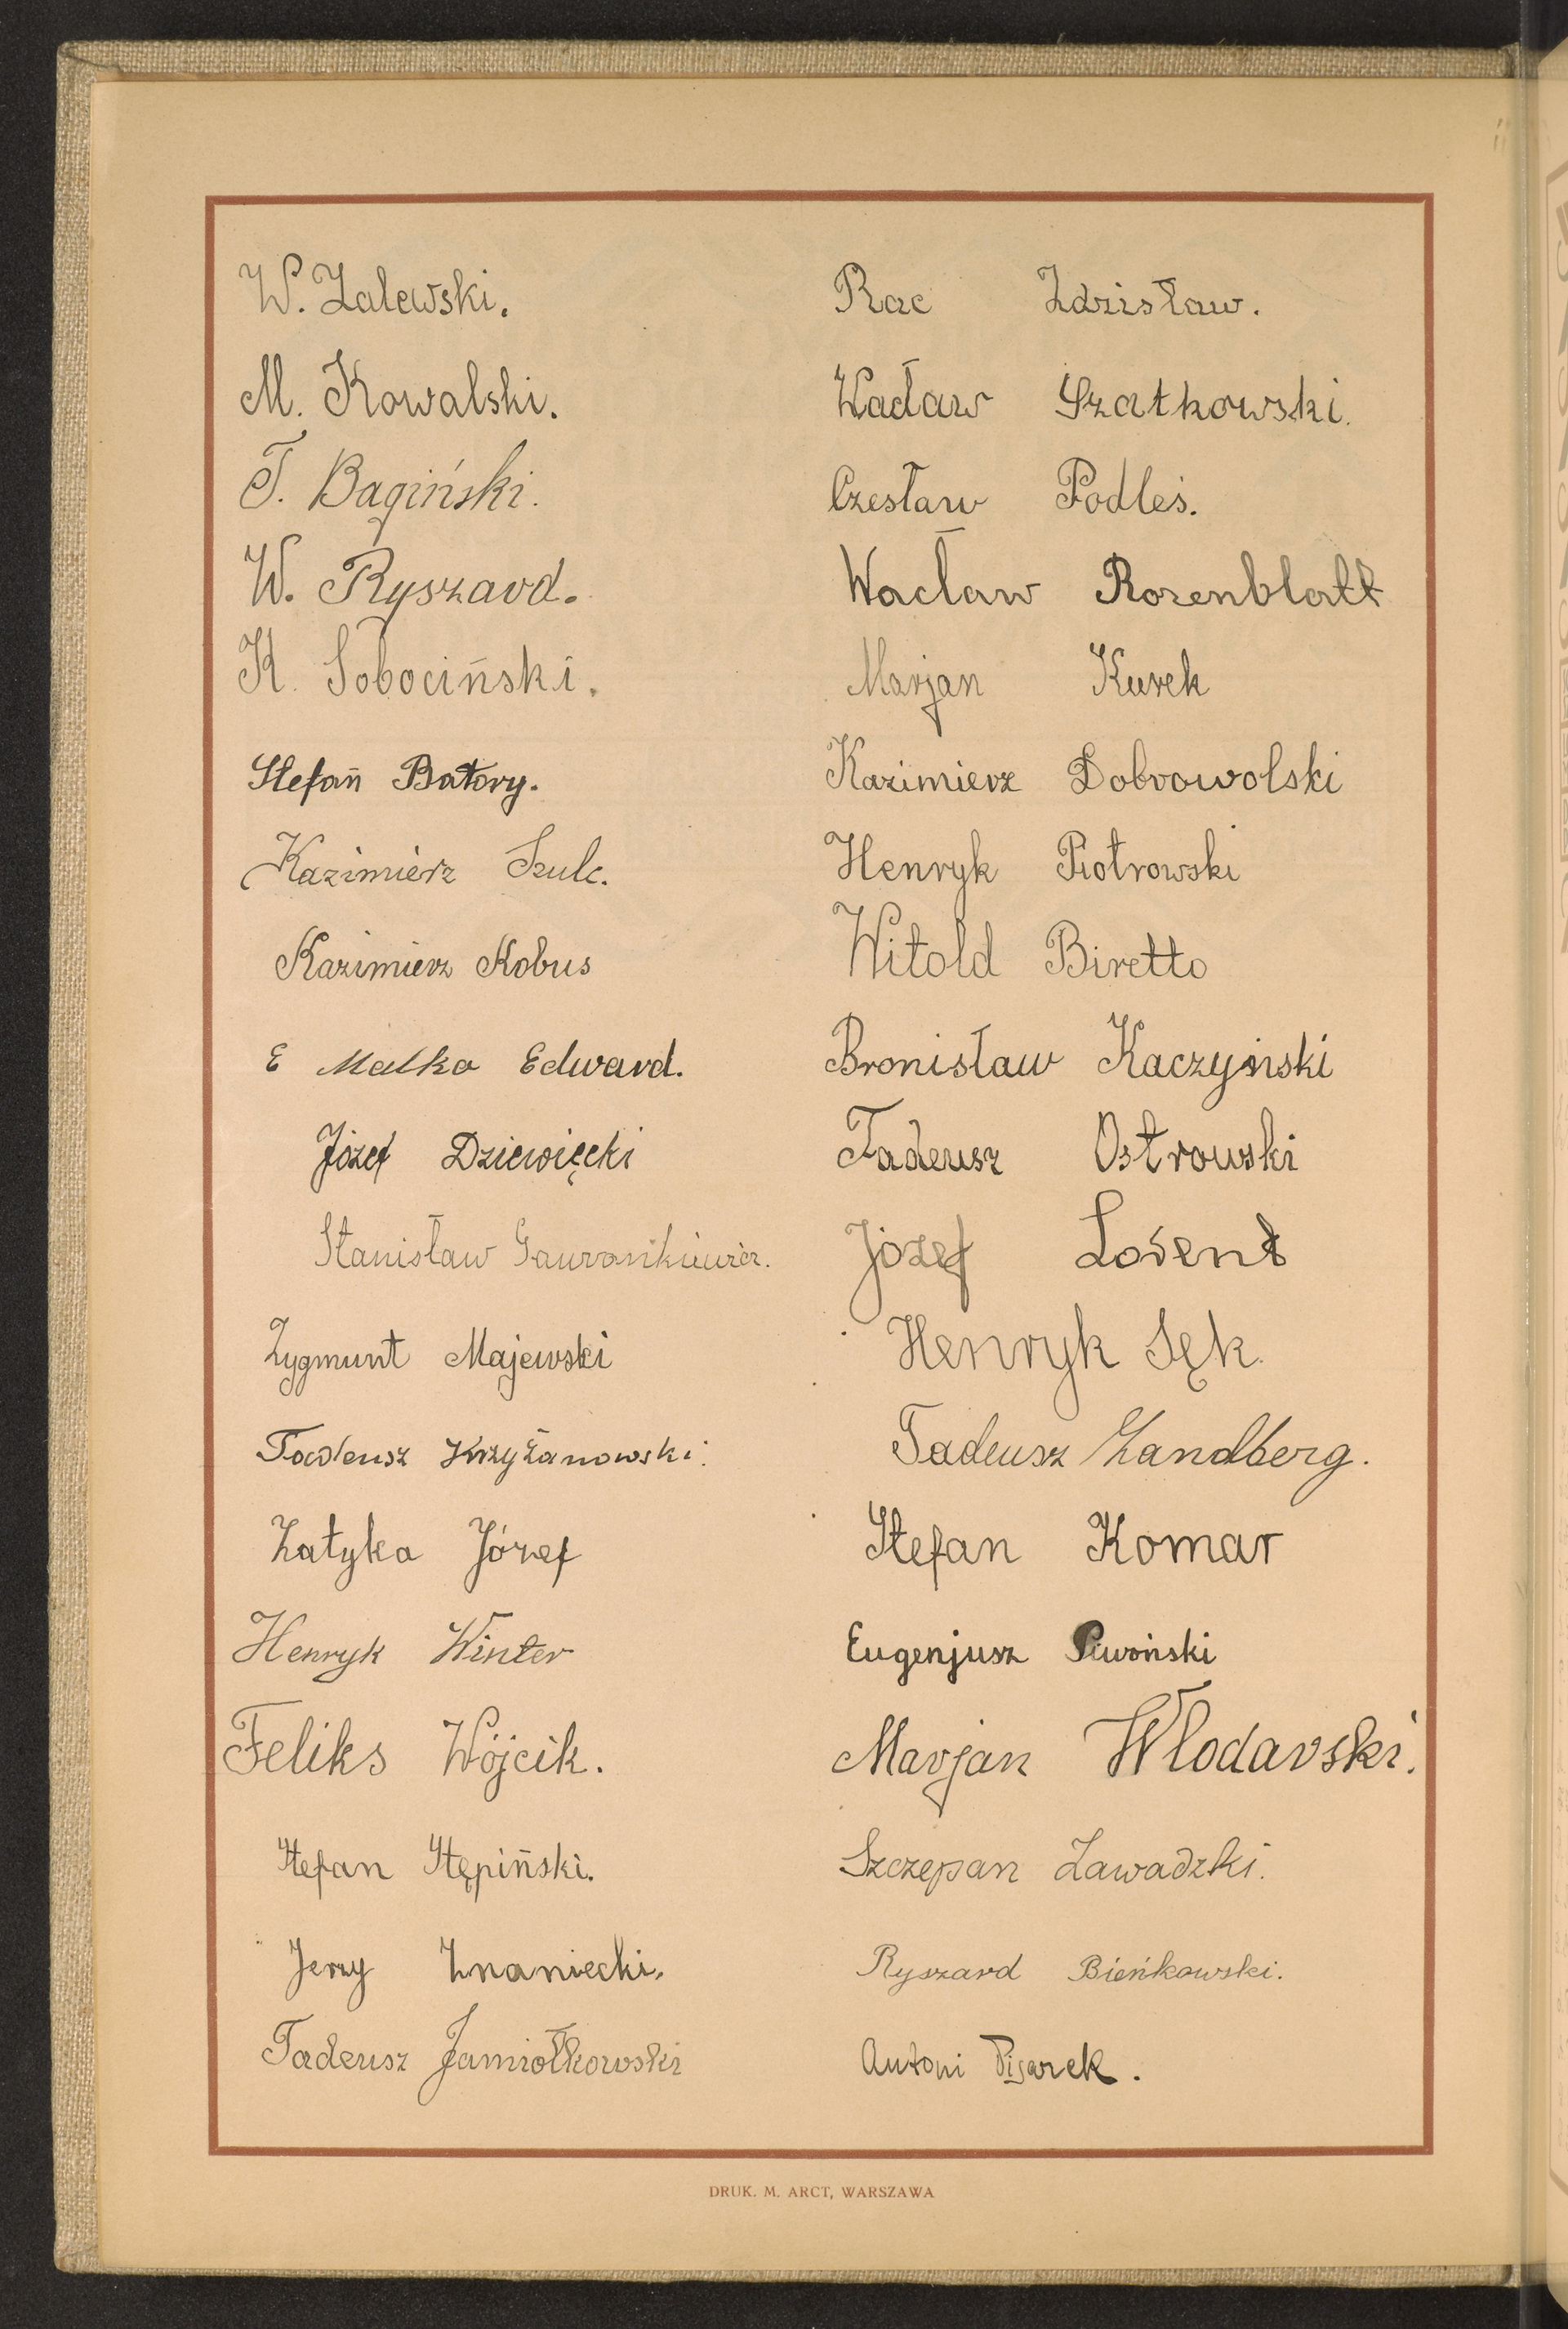 W. Zalewski.
M. Kowalski.
T. Bagiński.
W. Ryszard.
K. Sobociński.
Stefań Batory.
Kazimierz Szulc.
Kazimierz Kobus
E Malka Edward.
Józef Dziewięcki
Stanisław
Zygmunt Majewski
Tadeusz Krzyżanowski.
Zatyka Józef
Henryk Winter
Feliks Wójcik.
Stefan Stępiński.
Jerzy Znaniecki.
Tadeusz Jamiołkowski
Rac Zdzisław.
Wacław Szatkowski.
Czesław Podleś.
Wacław Rozenblatt
Marjan Kurek
Kazimierz Dobrowolski
Henryk Piotrowski
Witold Biretto
Bronisław Kaczyński
Tadeusz Ostrowski
Józef Lorent
Henryk Sęk.
Tadeusz Zandberg.
Stefan Komar
Eugenjusz Piwoński
Marjan Włodarski.
Szczepan Zawadzki.
Ryszard Bieńkowski.
Antoni Pisarek.
DRUK. M. ARCT, WARSZAWA